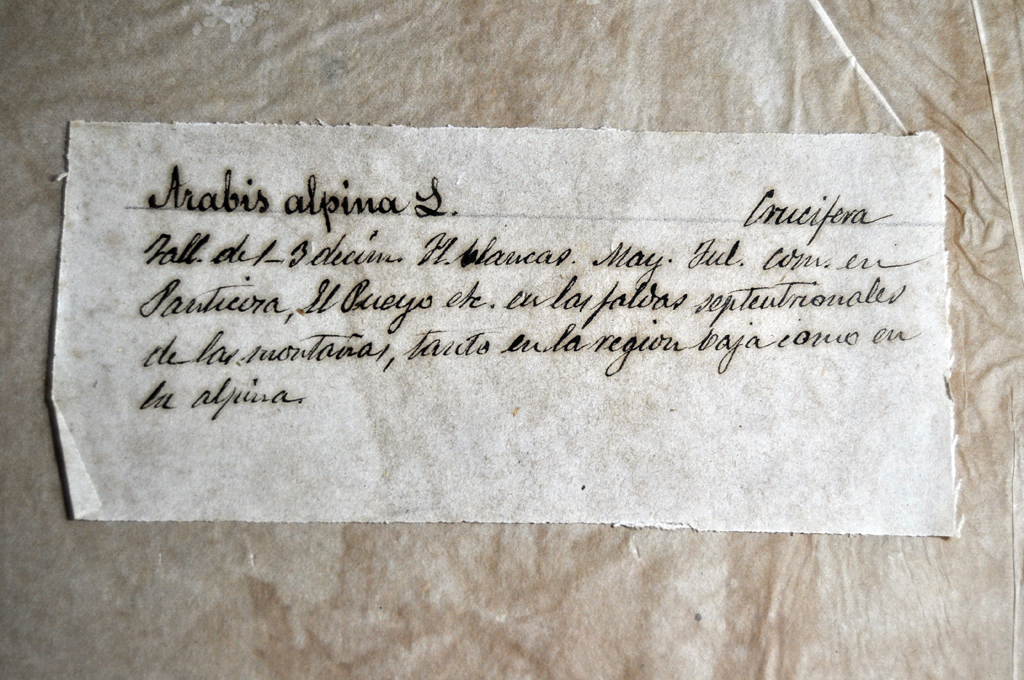 Arabis alpina L. Crucifera
Tall. de 1-3 decim. Fl. blancas. May. Jul. com. en
Panticosa, El Pueyo etc. en las faldas septentrionales
de las montañas, tanto en la region baja como en
la alpina.